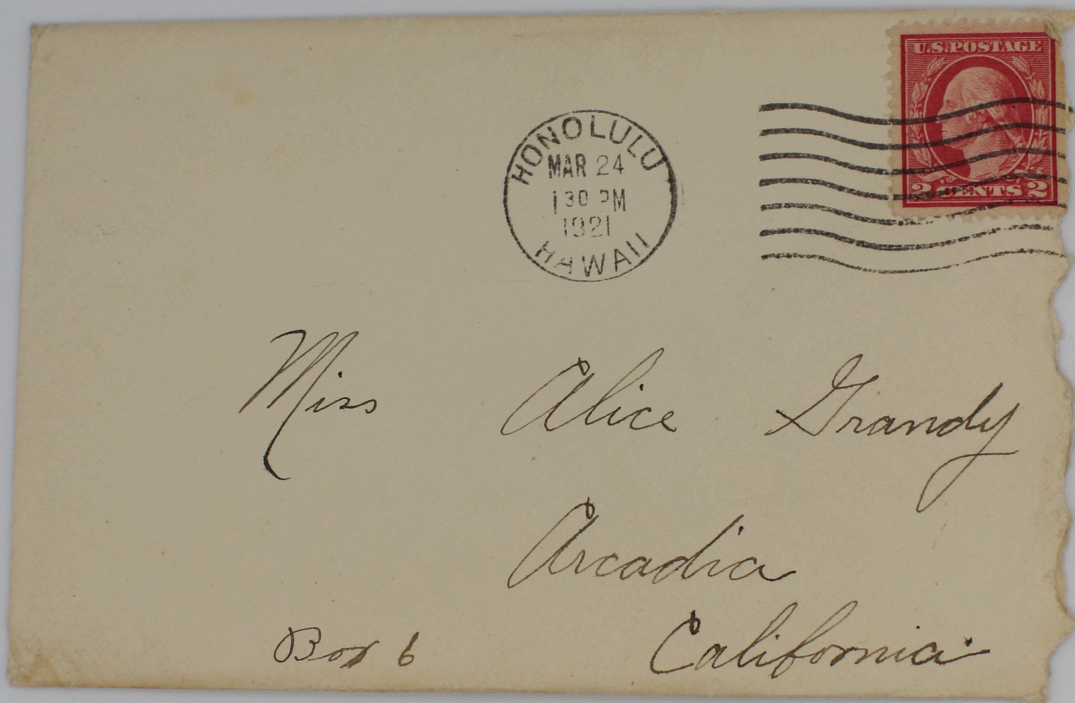 U.S. POSTAGE
2 CENTS 2
HONOLULU
MAR 24
130 PM
1921
HAWAII
Miss Alice Grandy
Arcadia
California.
Box 6